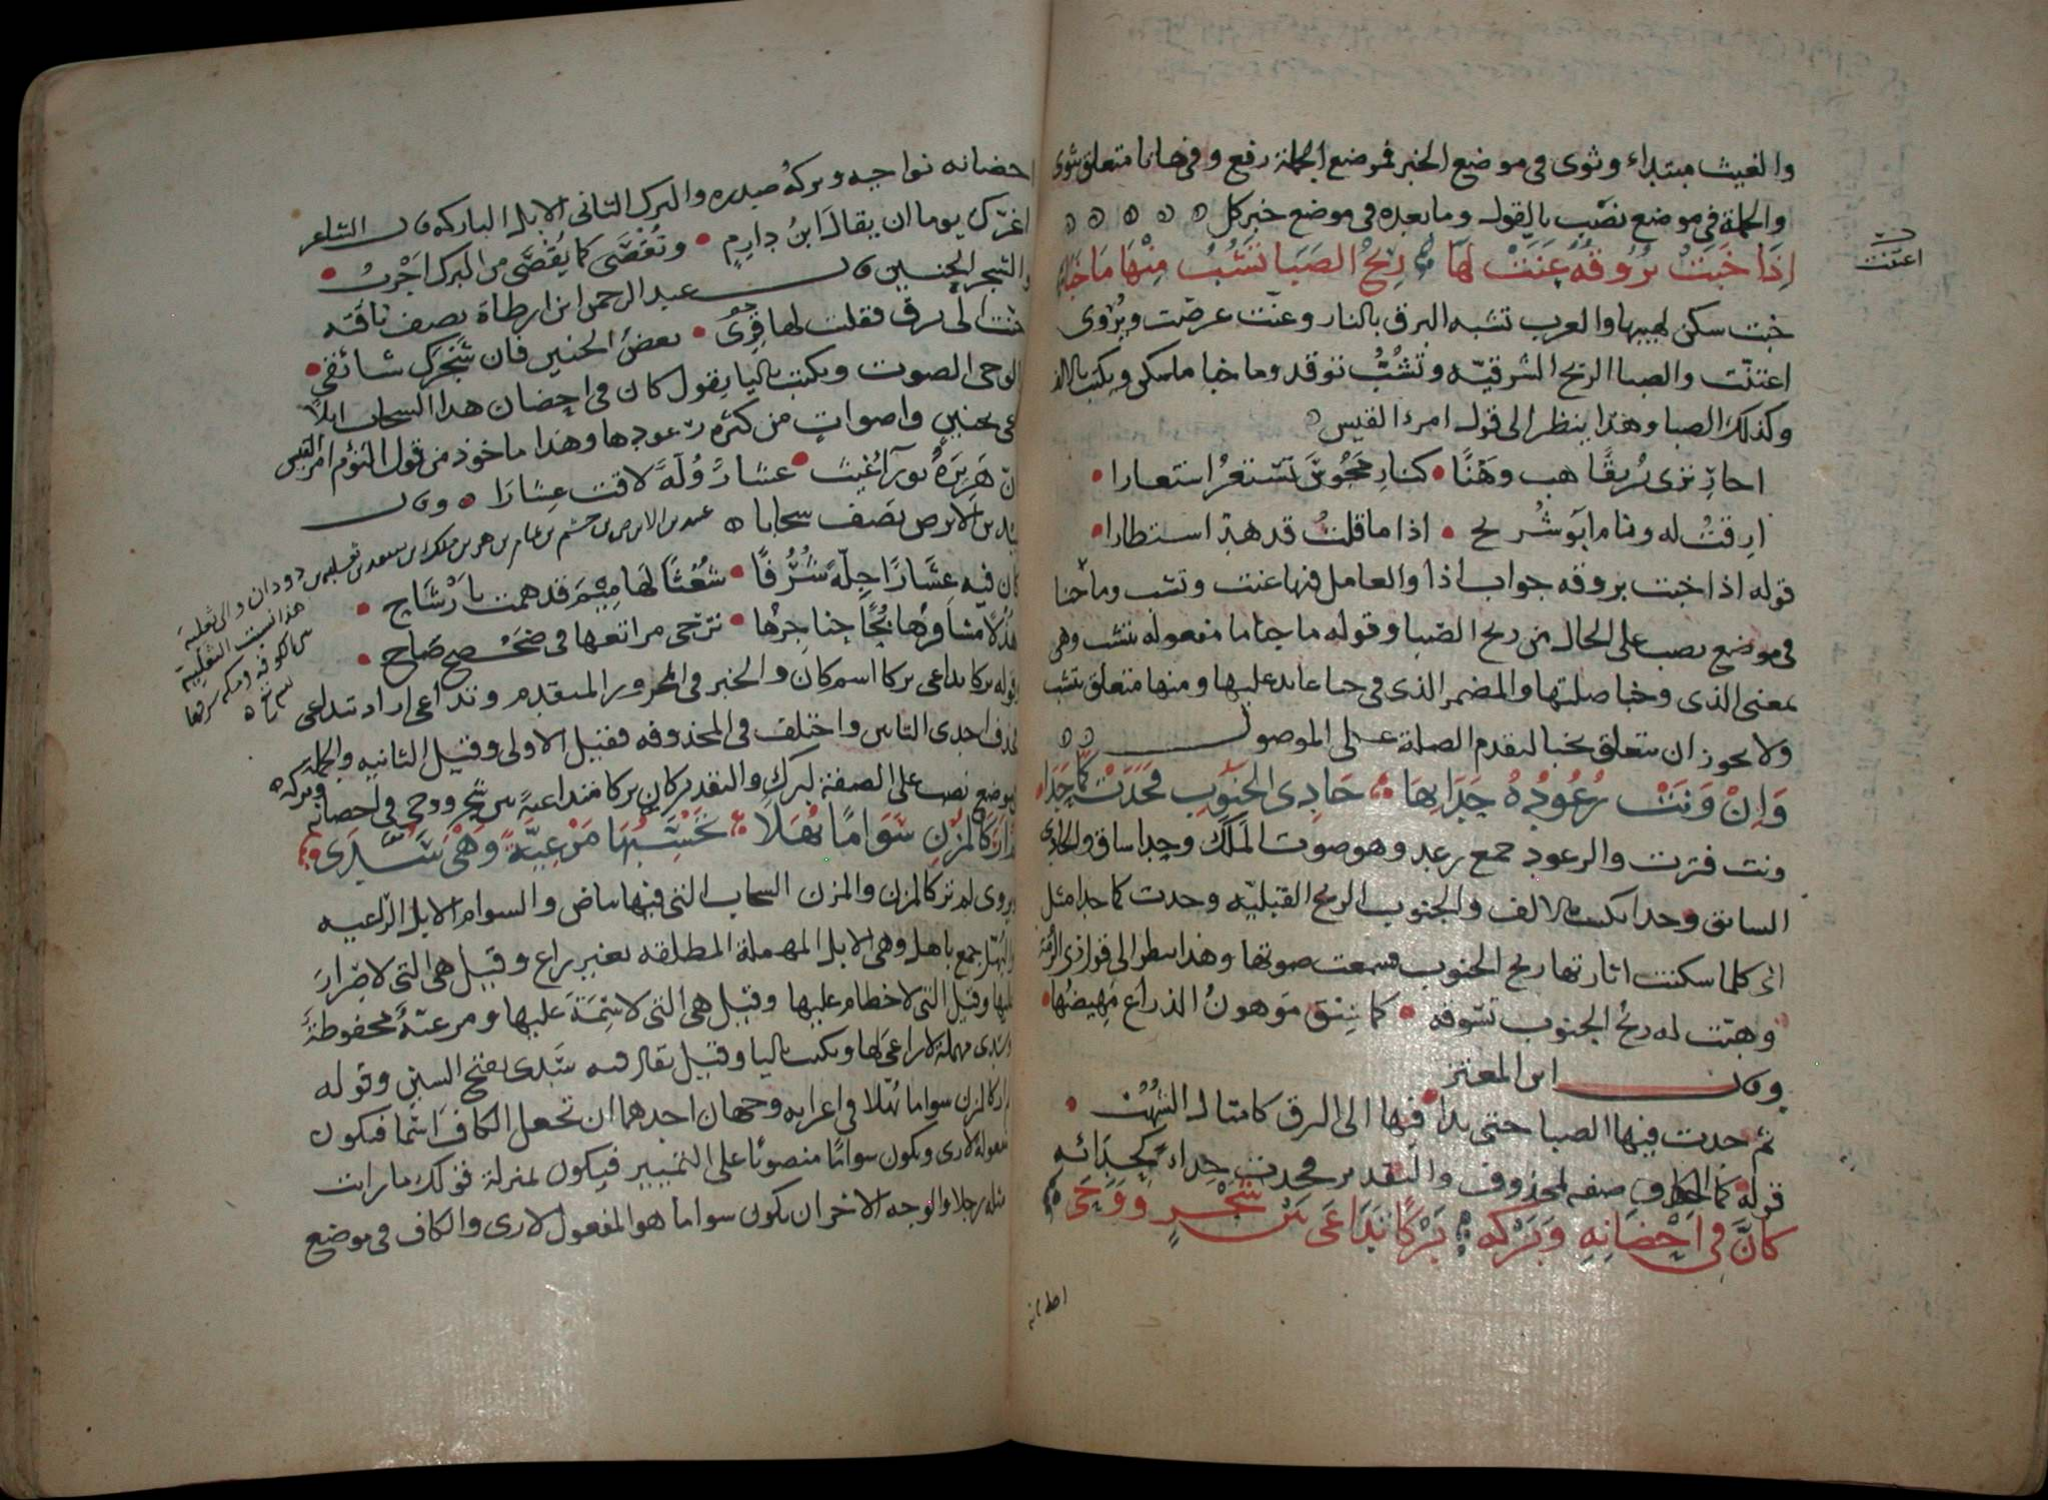 والغيث مبتداء وثوى فى موضع الخبر فموضع الجملة رفع وفى حانا متعلق بثوى
والجملة فى موضع نصب بالقول وما بعده فى موضع خبر كل
اِذَا خَبَتْ بُرُوقُهُ عَنَّتْ لَهَا رِيحُ الصَّبَا تَشُبُّ مِنْهَا مَا خَبَا
اعتنت
خبت سكن لهيبها والعرب تشبه البرق بالنار وعنّت عرضت ويُرْوى
اعتنّت والصبا الريح الشرقيّه وتشُبُّ توقد وما خبا ما سكن ويكتب بالالف
وكذلك الصبا وهذا ينظر الى قول امرء القيس
احارِ ترى بُريقًا هب وهْنًا • كنارِ مَجُوسَ تستعرُ استعارا •
ارِقتُ له ونام ابَو شُريح • اذا ما قلتُ قد هدأ استطارا •
قوله اذا خبت بروقه جواب اذا والعامل فيها عنت وتشب وما خبا
فى موضع نصب على الحال من ريح الصّبا وقوله ما خبا ما مفعوله بتشب وهى
بمعنى الذى وخبا صلتها والمضمر الذى فى خبا عايد عليها ومنها متعلق بتشب
ولا يجوز ان يتعلق بخبا لتقدم الصلة على الموصول
وَاِنْ وَنَتْ رُعُودُهُ حَدَا بِهَا حَادِى الجَنُوبِ فَحَدَتْ كَمَا حَدَا
ونت فترت والرعود جمع رعد وهو صوت المَلَك وحدا ساق والحادى
السائق وحدا يكتب بالالف والجنوب الريح القبليّه وحدت كما حدا مثل
اى كلما سكنت اثارتها ريح الجنوب فسمعت صوتها وهذا ينظر الى قول ذى الرُمّة
وهبّت له ريحُ الجنوب تسوقه • كما سِيْق مَوهونُ الذراع مَهِيضُها •
وقال ابن المعتز
ثم حدت فيها الصبا حتى بدا • فيها الى البرق كامثال الشُهُبْ •
قوله كما الكاف صفه لمحذوف والتقدير فحدت حِداءً كحِدائه
كَانَّ فِى اَحْضَانِهِ وَبَرْكِهِ بَرْكًا تَدَاعَى بَيْنَ سَجْرٍ وَوَحَى
احضانه
احضانه نواحيه وبركُه صدره والبرك الثانى الابل الباركه قال الشاعر
اغرّك يوما ان يقالَ ابنُ دارِمٍ • وتُقْصَى كما يُقْصَى من البرك اجْرَبُ •
والسجر الحنين قال عبد الرحمن ابن ارطاة يصف ناقته
حنت الى برق فقلت لها قِرِى • بعضُ الحنين فان سَجْرَكِ شائقى •
الوحى الصوت ويكتب باليا يقول كان فى احضان هذا السحاب ابلا
فى حنينٍ واصواتٍ من كثره رعودها وهذا ماخوذ من قول التؤم امرء القيس
كان هَزِيزَهُ بورآءِ غيثٍ • عشارٌ وُلَّهٌ لاقت عِشارَا • وقال
عبيد بن الابرص يصف سحابا
عبيد بن الابرص بن جشم بن عامر بن هر بن ملك بن سعد بن ثعلبه بن دودان والى ثعلبة
هذا نسبت الثعلبيه
كان فيه عشارًا جِلّةً شُرُفًا • شُعْثًا لَهَا مِيْمَ قد همت بارْشَاح •
هُدْلا مشافرُها بُحًّا حناجرُها • تزجى مراتعها فى ضَحْصَحٍ ضاح •
قوله بركا تداعى بركا اسم كان والخبر فى المجرور المتقدم وتداعى اراد تتداعى
فحذف احدى التائين واختلف فى المحذوفه فقيل الاولى وقيل الثانيه والجملة
فى موضع نصب على الصفة لبركٍ والتقدير كان بركا متداعيةً بين سَجْرٍ ووحى فى احضانه وبركه
لَمْ اَرَ كَالمُزْنِ سَوَامًا بُهَّلًا تَحْسَبُهَا مَرْعِيَّةً وَهْىَ سُدَى
ويروى لم تر كالمزن والمزن السحاب التى فيها بياض والسوام الابل الرّاعيه
والبُهَّل جمع باهل وهى الابل المهملة المطلقه بغير راع وقيل هى التى لا صِرَار
عليها وقيل التى لا خطام عليها وقيل هى التى لا سِمَةَ عليها ومرعيّةً محفوظةً
وسُدى مهملة لا راعىَ لها ويكتب باليا وقيل يقال فيه سَدى بفتح السين وقوله
لم ار كالمزن سواما بُهّلا فى اعرابه وجهان احدهما ان تجعل الكاف اسْمًا فيكون
مفعولة لارى ويكون سوامًا منصوبًا على التمييز فيكون بمنزلة قولك ما رايت
مثله رجلا والوجه الاخر ان يكون سواما هو المفعول لارى والكاف فى موضع